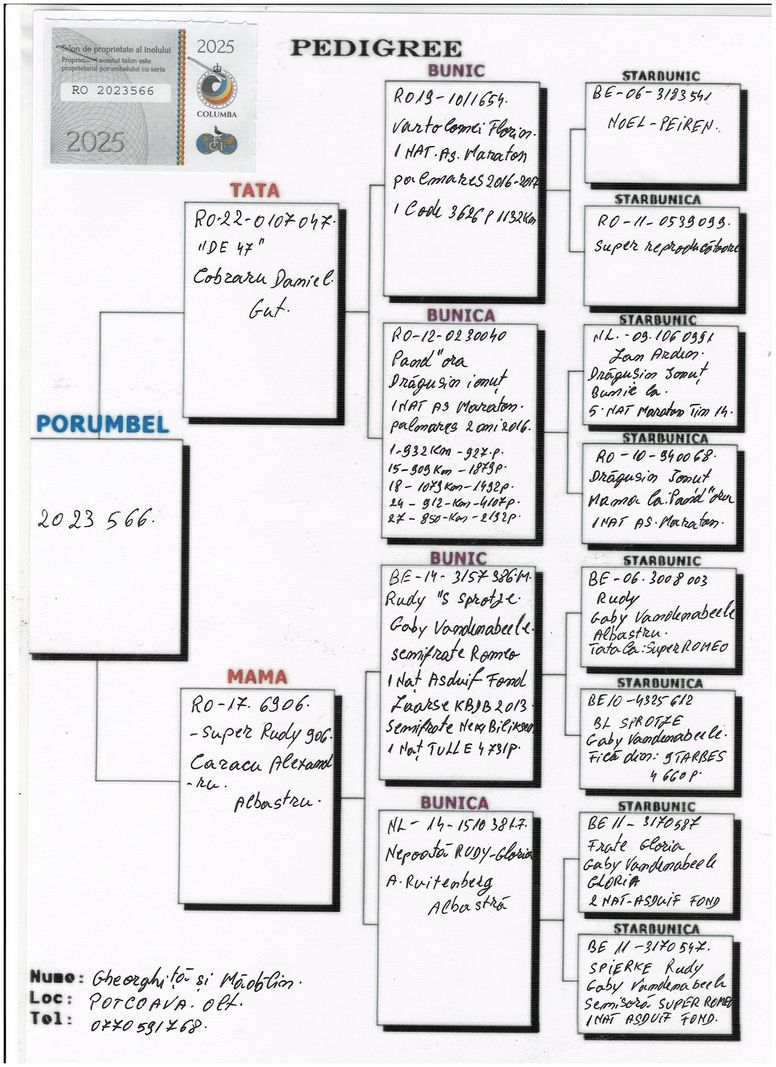 Talon de proprietate al inelului
Proprietarul acestui talon este
proprietarul porumbelului cu seria
RO 2023566
2025
2025
COLUMBA
PEDIGREE
PORUMBEL
2023 566.
TATA
RO-22-0107047.
"DE 47"
Cobzaru Daniel.
Gut.
MAMA
RO-17. 6906.
-Super Rudy 906.
Caracu Alexand
-ru.
Albastru.
BUNIC
RO19-1011654.
Vartolomei Florin.
1 NAT. As. Maraton
palmares 2016-2017
1 Code 3626p 1132Km
BUNICA
RO-12-0230040
Pand"ora
Drăgușin ionuț
1 NAT AS Maraton.
palmares 2 ani 2016.
1-932Km-927.p.
15-909Km-1879p.
18-1079Km-1492p.
24-912-Km-4107p.
27-850-Km-2192p.
BUNIC
BE-14-3157386.M.
Rudy "S Sprotje.
Gaby Vandenabeele.
semifrate Romeo
1 Naț Asduif Fond
Laarse KBDB 2013.
Semifrate New Bliksem
1 Naț TULLE 4731p.
BUNICA
NL-14-1510381.F.
Nepoată RUDY-Gloria
A. Ruitenberg
Albastră
STARBUNIC
BE-06-3183541
NOEL-PEIREN.
STARBUNICA
RO-11-0539099.
Super reproducătoare
STARBUNIC
NL.-09.1060991
Jan Arden.
Drăgușin Ionuț
Bunic la.
5. NAT Maraton Tim 14.
STARBUNICA
RO-10-940068.
Drăgușin Ionut
Mama la: Pand"ora
1 NAT AS. Maraton.
STARBUNIC
BE-06.3008003
Rudy
Gaby Vandenabeele
Albastru.
Tata la: Super ROMEO
STARBUNICA
BE10-4325612
BL SPROTJE
Gaby Vandenabeele.
Fică din: STARBES
4 660 p.
STARBUNIC
BE 11-3170587
Frate Gloria
Gaby Vandenabeele
GLORIA
2 NAT-ASDUIF FOND
STARBUNICA
BE 11-3170547.
SPIERKE Rudy
Gaby Vandenabeele
Semisoră SUPER ROMEO
1 NAT ASDUIF FOND.
Nume: Gheorghiță și Mădălin.
Loc: POTCOAVA. Olt.
Tel: 0770591768.